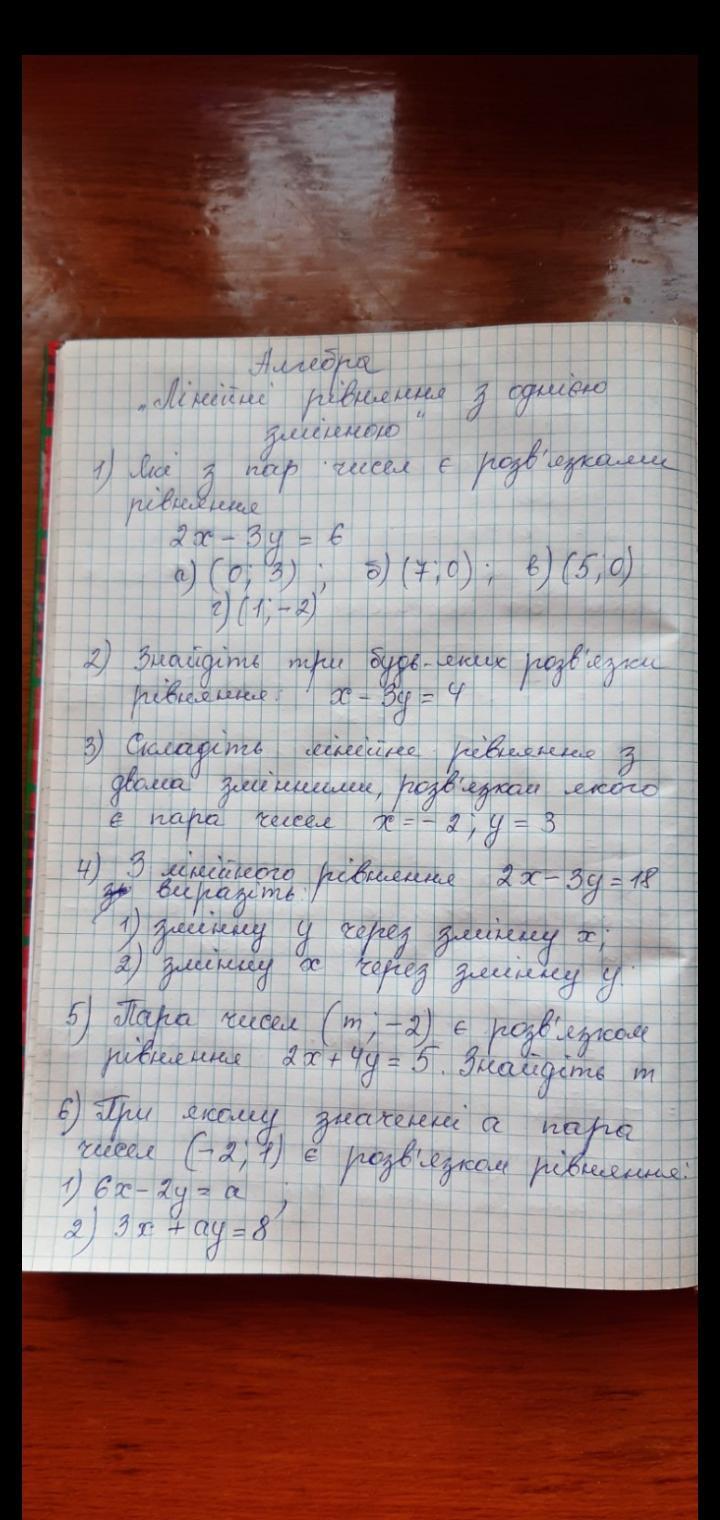 Алгебра
„Лінійні рівняння з однією
змінною"
1) Які з пар чисел є розв'язками
рівняння
2x - 3y = 6
а) (0; 3) ; б) (7; 0) ; в) (5; 0)
г) (1; -2)
2) Знайдіть три будь-яких розв'язки
рівняння: x - 3y = 4
3) Складіть лінійне рівняння з
двома змінними, розв'язком якого
є пара чисел x = -2; y = 3
4) З лінійного рівняння 2x - 3y = 18
виразіть:
1) змінну y через змінну x;
2) змінну x через змінну y.
5) Пара чисел (m; -2) є розв'язком
рівняння 2x + 4y = 5. Знайдіть m
6) При якому значенні a пара
чисел (-2; 1) є розв'язком рівняння:
1) 6x - 2y = a ;
2) 3x + ay = 8